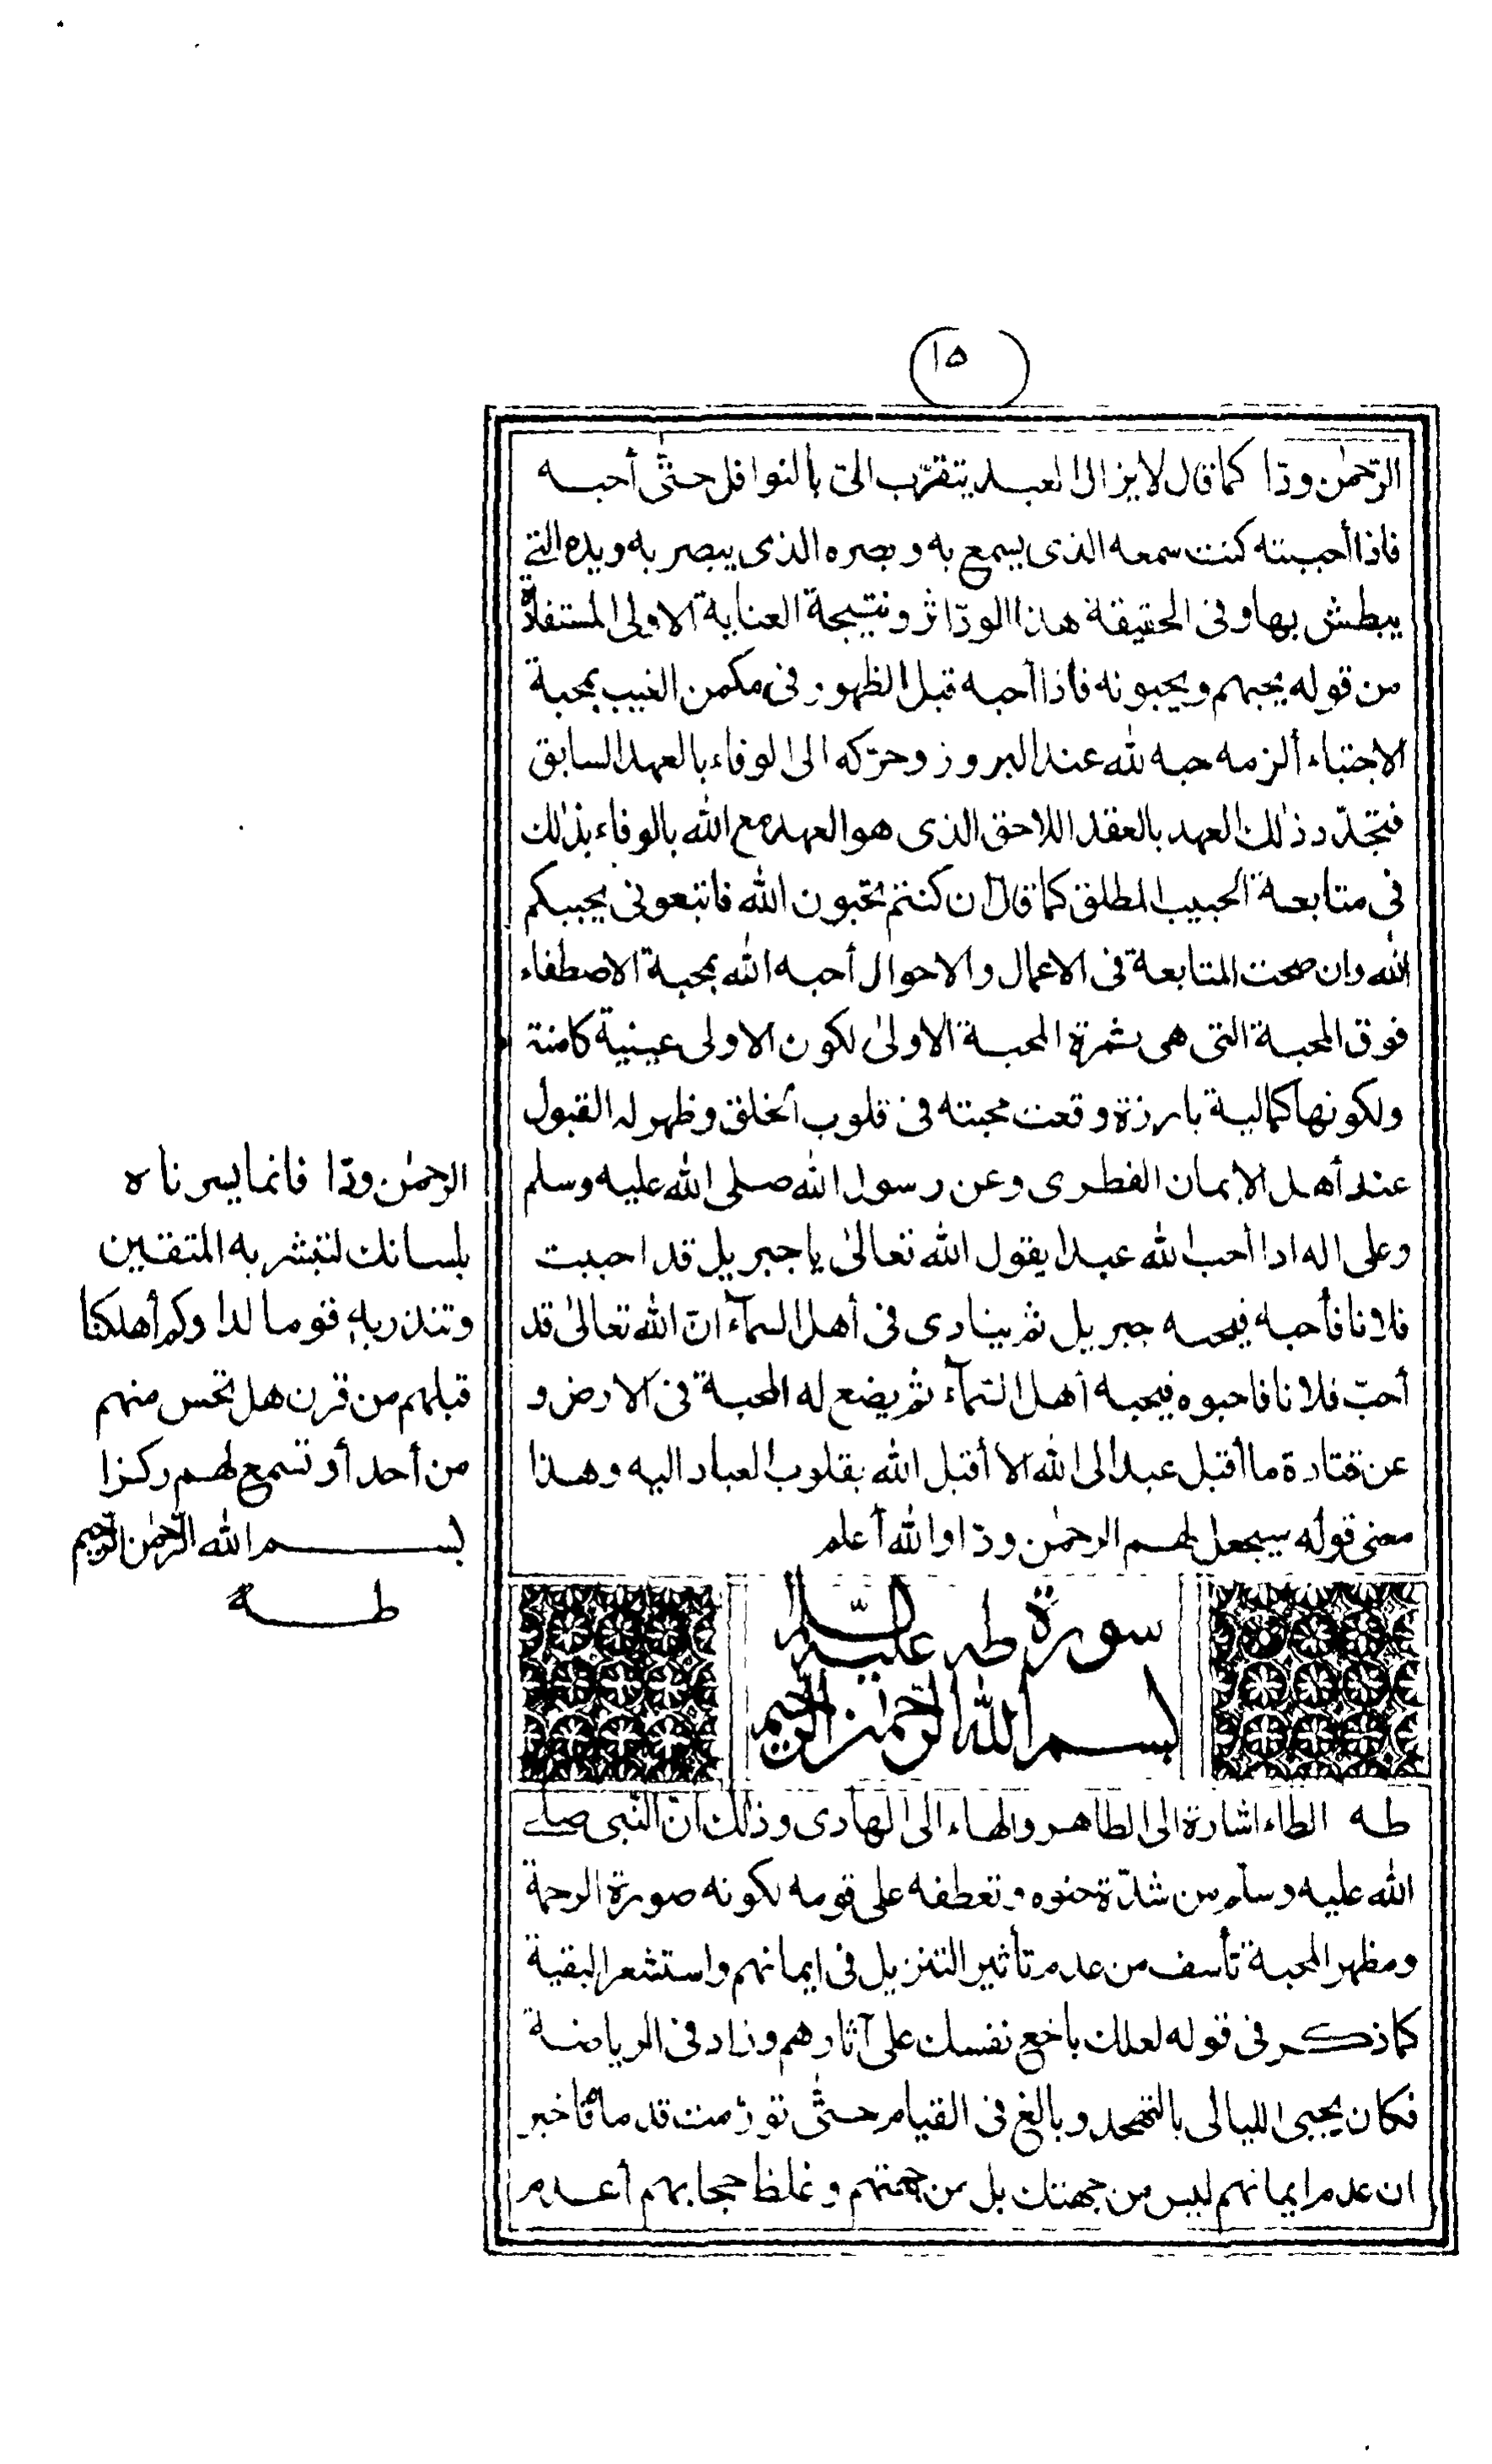 ١٥
الرّحمٰن ودّا كما قال لا يزال العبد يتقرّب الىّ بالنوافل حتّى أحبه
فاذا أحببته كنت سمعه الذى يسمع به وبصره الذى يبصر به ويده التى
يبطش بها وفى الحقيقة هذا الودّ اثر ونتيجة العناية الاولى المستفادة
من قوله يحبهم ويحبونه فاذا أحبه قبل الظهور فى مكمن الغيب بمحبة
الاجتباء ألزمه حبه لله عند البروز وحرّكه الى الوفاء بالعهد السابق
فتجدّد ذلك العهد بالعقد اللاحق الذى هو العهد مع الله بالوفاء بذلك
فى متابعة الحبيب المطلق كما قال ان كنتم تحبون الله فاتبعونى يحببكم
الله وان صحت المتابعة فى الاعمال والاحوال أحبه الله بمحبة الاصطفاء
فوق المحبة التى هى ثمرة المحبة الاولىٰ لكون الاولى عينية كامنة
ولكونها كمالية بارزة وقعت محبته فى قلوب الخلق وظهر له القبول
عند أهل الايمان الفطرى وعن رسول الله صلى الله عليه وسلم
وعلى اله اذا أحب الله عبدا يقول الله تعالىٰ يا جبريل قد احببت
فلانا فأحبه فيحبه جبريل ثم ينادى فى أهل السمآء انّ الله تعالىٰ قد
أحبّ فلانا فاحبوه فيحبه أهل السّمآء ثم يضع له المحبة فى الارض و
عن قتادة ما أقبل عبد الى الله الا أقبل الله بقلوب العباد اليه وهذا
معنى قوله سيجعل لهم الرحمٰن ودّا والله أعلم
الرحمٰن ودّا فانما يسرناه
بلسانك لتبشر به المتقين
وتنذر به قوما لدا وكم أهلكنا
قبلهم من قرن هل تحس منهم
من أحد أو تسمع لهم ركزا
بسم الله الرّحمٰن الرّحيم
طه
سورة طه عليه السّلام
بسم الله الرّحمٰن الرّحيم
طه الطاء اشارة الى الطاهر والهاء الى الهادى وذلك انّ النّبى صلى
الله عليه وسلّم من شدّة حنوه وتعطفه على قومه لكونه صورة الرحمة
ومظهر المحبة تأسف من عدم تأثير التنزيل فى ايمانهم واستشعر البقية
كما ذكر فى قوله لعلك باخع نفسك على آثارهم وزاد فى الرياضة
فكان يحيى الليالى بالتهجد وبالغ فى القيام حتّى تورّمت قدماه فاخبر
ان عدم ايمانهم ليس من جهتك بل من جهتهم وغلظ حجابهم أعدم